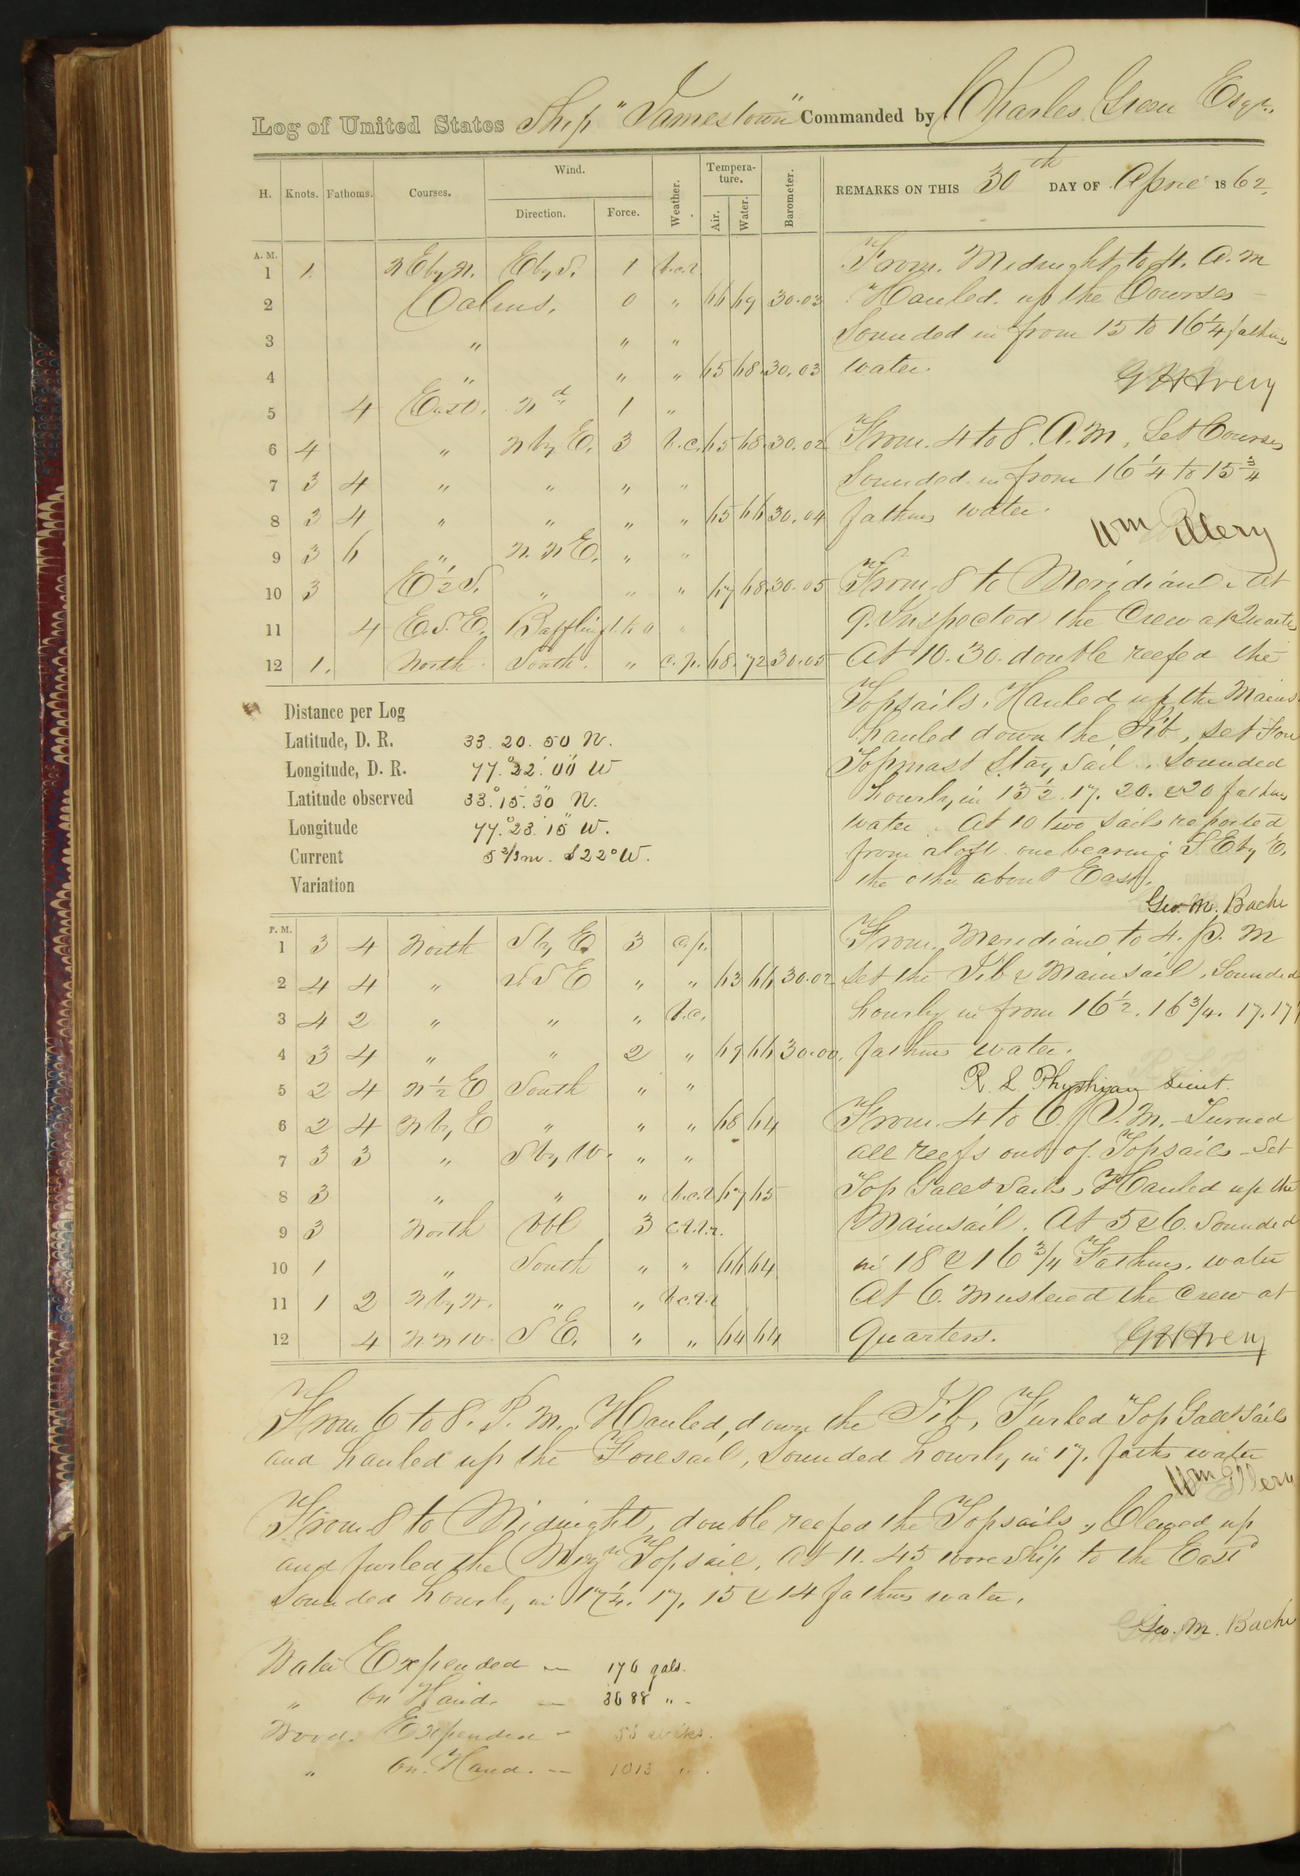 Log of United States Ship "Jamestown" Commanded by Charles Green Esqr.
H. Knots. Fathoms. Courses. Wind. Direction. Force. Weather. Temperature. Air. Water. Barometer.
REMARKS ON THIS 30th DAY OF April 1862.
A. M.
1 1 N E by N. E by S. 1 b.c.q
2 Calms. 0 " 66 69 30.03
3 " " "
4 " " " 65 68 30.03
5 4 East. Nd 1 "
6 4 " N by E. 3 b.c. 65 68 30.02
7 3 4 " " " "
8 3 4 " " " " 65 66 30.04
9 3 6 " N. N E. " "
10 3 E ½ S. " " " 67 68 30.05
11 4 E. S. E. Baffling 1 to 0 "
12 1. North South. " c.p. 68 72 30.05
From Midnight to 4. A. M
Hauled up the Courses
Sounded in from 15 to 16 ¼ fathms
water.
G H Avery
From 4 to 8. A. M. Set Courses
Sounded in from 16 ¼ to 15 ¾
fathms water.
Wm Ellery
From 8 to Meridian. At
9. Inspected the Crew at Quarters
At 10.30. double reefed the
Topsails. Hauled up the Mains.
hauled down the Jib, set Fore
Topmast Stay Sail. Sounded
hourly in 15 ½. 17. 20. & 20 fathms
water. At 10 two sails reported
from aloft one bearing S. E by E.
the other about East.
Geo. M. Bache
Distance per Log
Latitude, D. R. 33. 20. 50 N.
Longitude, D. R. 77.° 22.' 00" W
Latitude observed 33.° 15.' 30" N.
Longitude 77.° 23.' 15" W.
Current 5 ⅔ m. S 22° W.
Variation
P. M.
1 3 4 North S by E 3 c.p.
2 4 4 " S S E " " 63 66 30.02
3 4 2 " " " b.c.
4 3 4 " " 2 " 69 66 30.00
5 2 4 N ½ E South " "
6 2 4 N by E " " " 68 64
7 3 3 " S by W. " "
8 3 " " " b.c.q 67 65
9 3 North Vbl 3 c.q.l.r.
10 1 " South " " 66 64
11 1 2 N by W. " " b.c.q.l
12 4 N N W. S E. " " 64 64
From Meridian to 4. P. M
set the Jib & Mainsail. Sounded
hourly in from 16 ½. 16 ¾. 17. 17
fathms water.
R. L. Phythian Lieut.
From 4 to 6. P. M. Turned
all reefs out of Topsails - Set
Top Gallt Sails, Hauled up the
Mainsail. At 5 & 6. Sounded
in 18 & 16 ¾ Fathms. water
At 6. Mustered the Crew at
Quarters. G H Avery
From 6 to 8. P. M. Hauled down the Jib, Furled Top Gallt Sails
and hauled up the Foresail, Sounded hourly in 17. faths water
Wm Ellery
From 8 to Midnight, double reefed the Topsails, Clewed up
and furled the Mizn Topsail. At 11.45 wore Ship to the Eastd
Sounded hourly in 17 ¼. 17. 15 & 14 fathms water.
Geo. M. Bache
Water Expended — 176 gals.
" On Hand. — 3688 " .
Wood. Expended — 58 sticks.
" On Hand. — 1013 " .